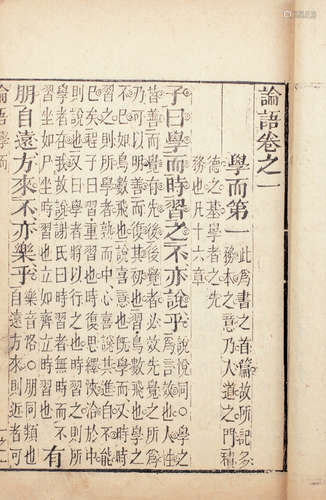 論語卷之一
學而第一
此為書之首篇故所記多
務本之意乃入道之門積
德之基學者之先
務也凡十六章
子曰學而時習之不亦說乎
說悅同○學之
為言效也人性
皆善而覺有先後後覺者必效先覺之所為
乃可以明善而復其初也習鳥數飛也學之
不已如鳥數飛也說喜意也既學而又時時
習之則所學者熟而中心喜說其進自不能
已矣程子曰習重習也時復思繹浹洽於中
則說也又曰學者將以行之也時習之則所
學者在我故說謝氏曰時習者無時而不
習坐如尸坐時習也立如齊立時習也
有
朋自遠方來不亦樂乎
樂音洛○朋同類也
自遠方來則近者可
論語